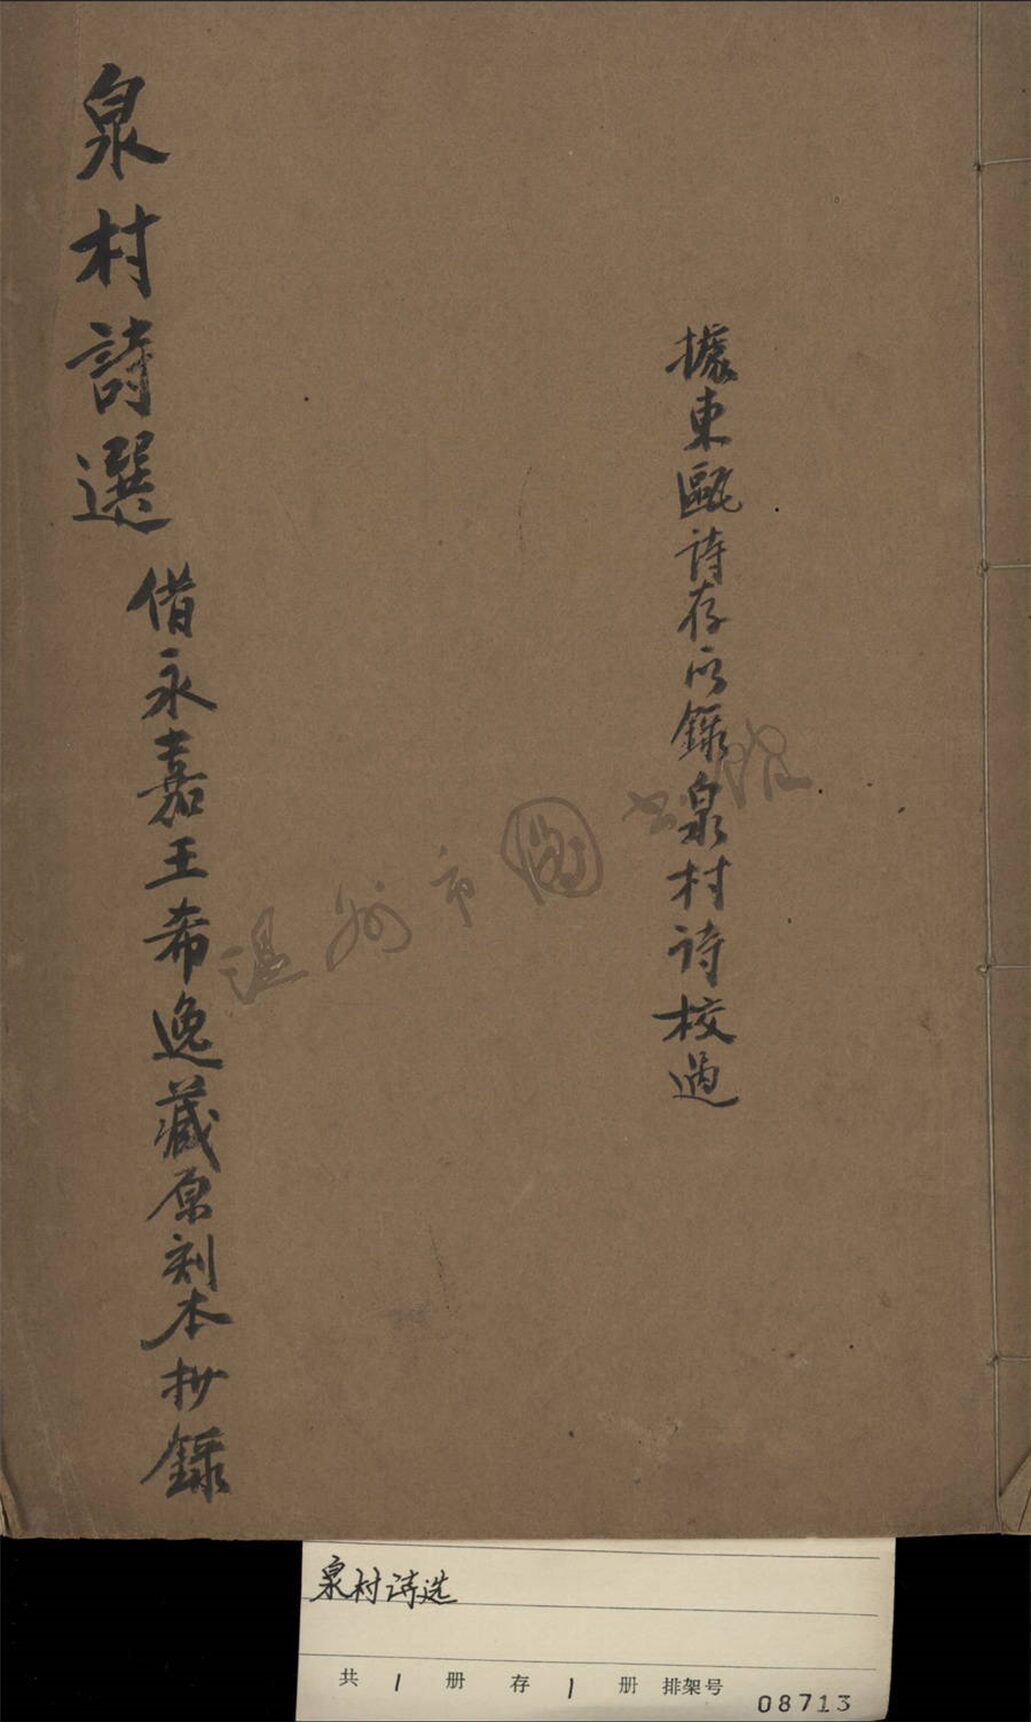 據東甌詩存所錄泉村詩校過
泉村詩選
借永嘉王希逸藏原刻本抄錄
温州市圖书馆
泉村诗选
共 1 册 存 1 册 排架号 08713